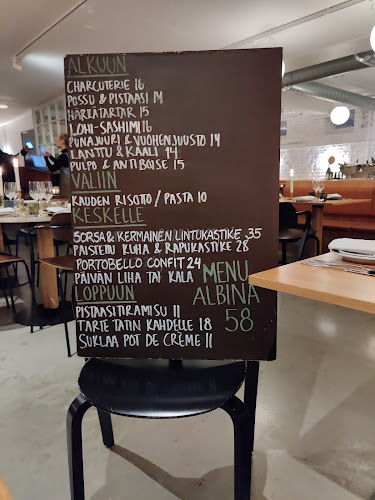 ALKUUN
CHARCUTERIE 16
POSSU & PISTAASI 14
HÄRTÄTARTAR 15
LOHI-SASHIMI 16
PUNAJUURI & VUOHENJUUSTO 14
LANTTU & KAALI 14
PULPO & ANTIBOISE 15
VÄLIIN
KAUDEN RISOTTO / PASTA 10
KESKELLE
SORSA & KERMAINEN LINTUKASTIKE 35
PAISTETTU KUHA & RAPUKASTIKE 28
PORTOBELLO CONFIT 24
PÄIVÄN LIHA TAI KALA
LOPPUUN
PISTAASITIRAMISU 11
TARTE TATIN KAHDELLE 18
SUKLAA POT DE CRÈME 11
MENU
ALBINA
58